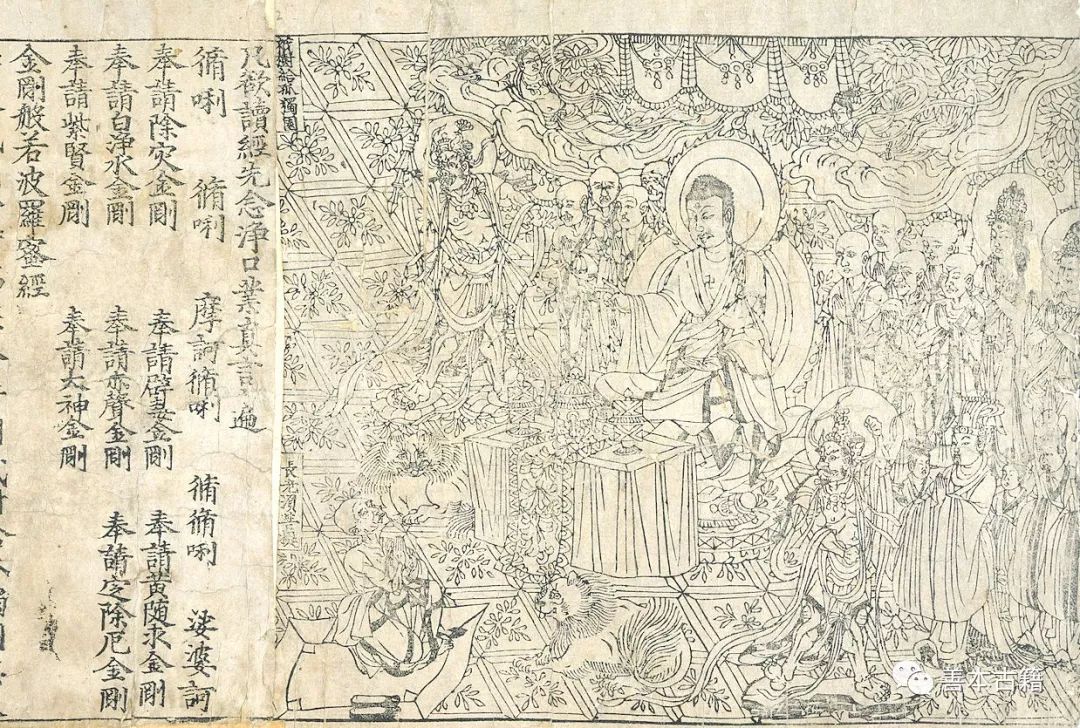 祇樹給孤獨園
長老須菩提
凡欲讀經先念浄口業真言遍
脩唎 脩唎 摩訶脩唎 脩脩唎 娑婆訶
奉請除灾金剛 奉請辟毒金剛 奉請黄随求金剛
奉請白浄水金剛 奉請赤聲金剛 奉請定除厄金剛
奉請紫賢金剛 奉請大神金剛
金剛般若波羅蜜經
善本古籍